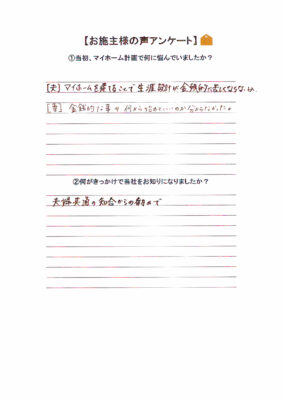 【お施主様の声アンケート】
①当初、マイホーム計画で何に悩んでいましたか？
[夫] マイホームを建てることで生涯設計が金銭的に苦しくならないか
[妻] 金銭的な事や何から始めていいのか分からなかった。
②何がきっかけで当社をお知りになりましたか？
夫婦共通の知合からの紹介で